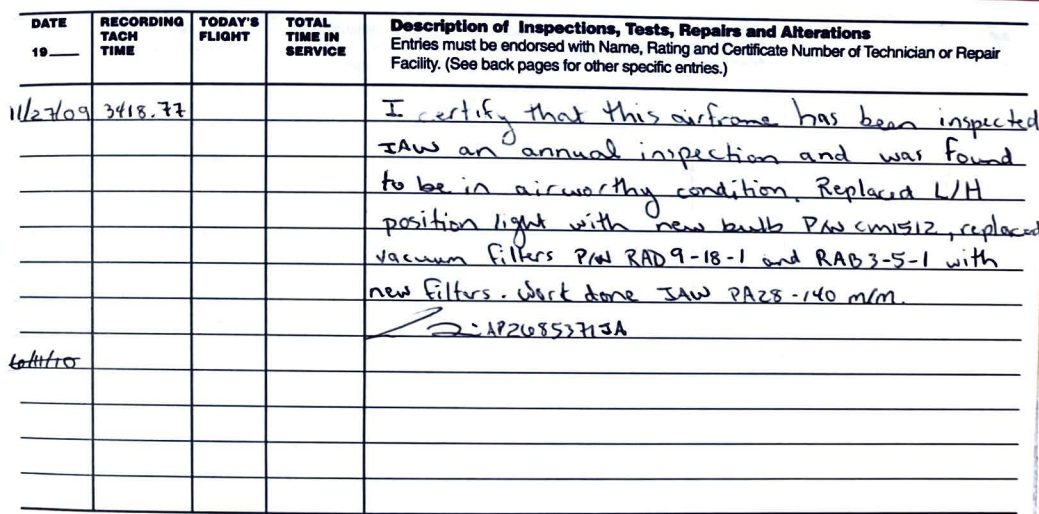 DATE
19
RECORDING TACH TIME
TODAY'S FLIGHT
TOTAL TIME IN SERVICE
Description of Inspections, Tests, Repairs and Alterations
Entries must be endorsed with Name, Rating and Certificate Number of Technician or Repair
Facility. (See back pages for other specific entries.)
11/27/09 3418.77 I certify that this airframe has been inspected
IAW an annual inspection and was found
to be in airworthy condition. Replaced L/H
position light with new bulb P/N CM1512, replaced
vacuum filters P/N RAD9-18-1 and RAB3-5-1 with
new filters. Work done IAW PA28-140 m/m.
AP2685371IA